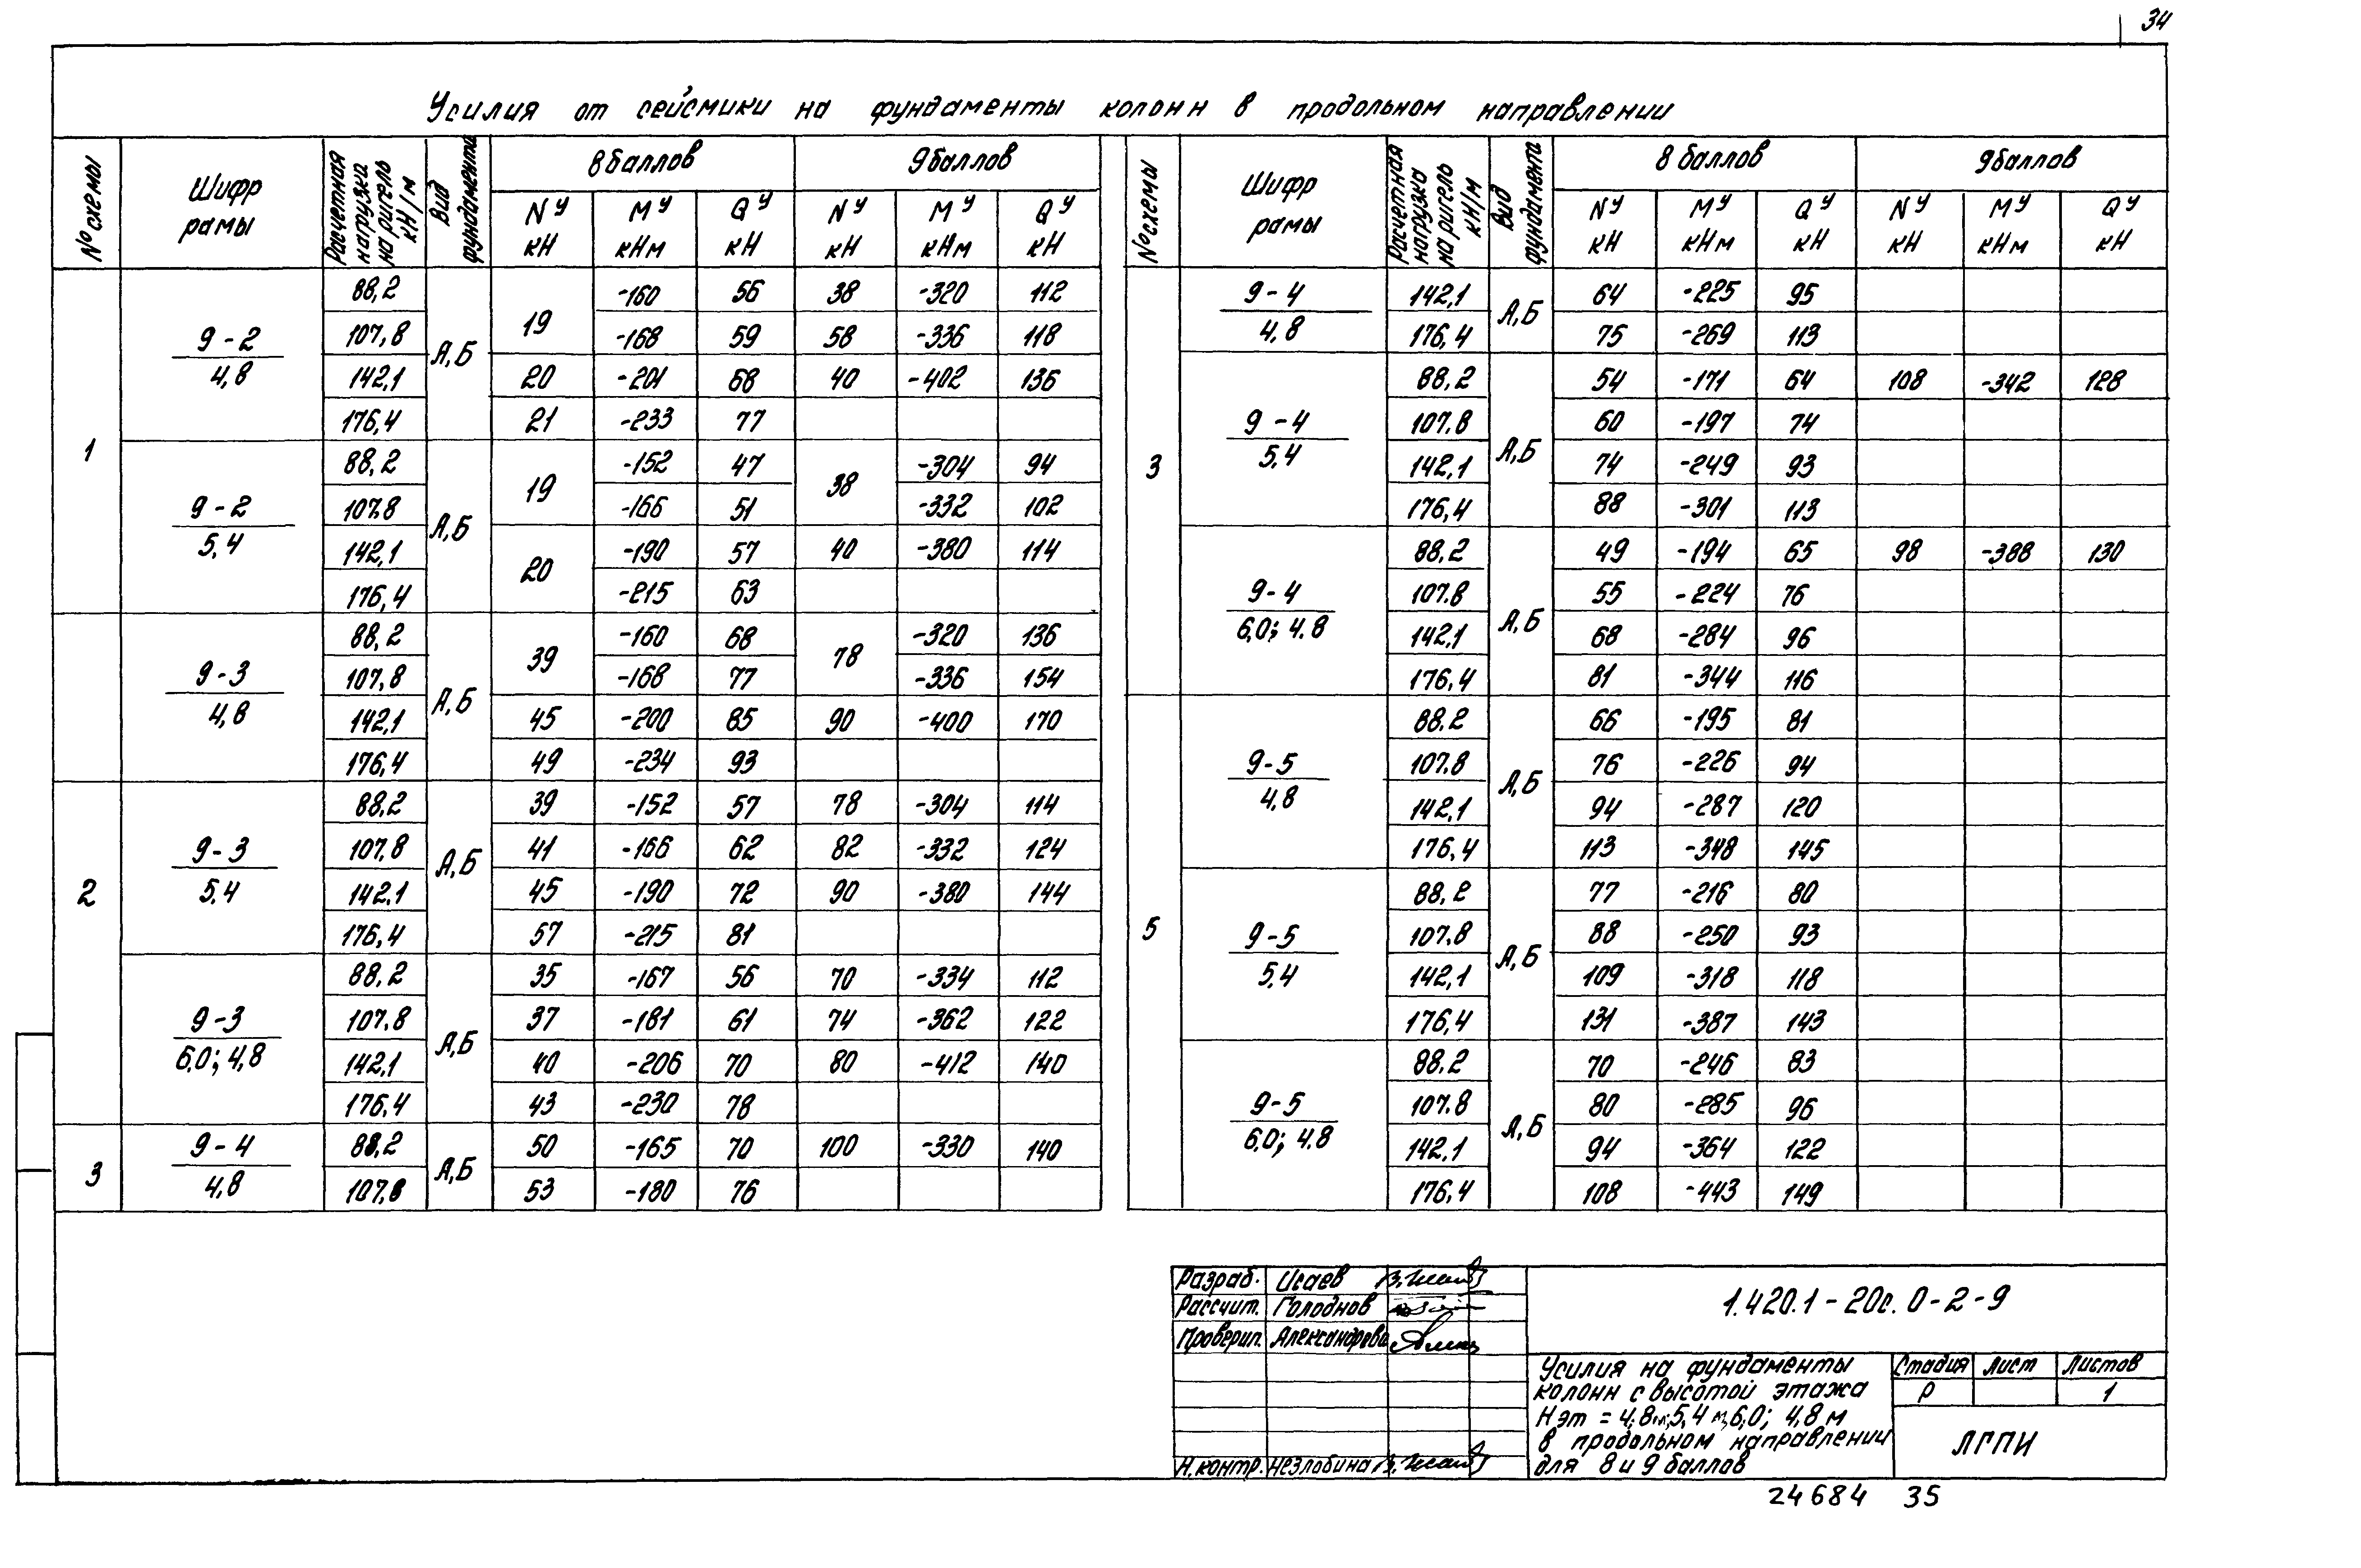 34
Усилия от сейсмики на фундаменты колонн в продольном направлении
№ схемы | Шифр рамы | Расчетная нагрузка на ригель кН/м | Вид фундамента | 8 баллов | 9 баллов
Nʸ кН | Mʸ кНм | Qʸ кН | Nʸ кН | Mʸ кНм | Qʸ кН
1 | 9-2 / 4,8 | 88,2 | А,Б | 19 | -160 | 56 | 38 | -320 | 112
107,8 | -168 | 59 | 58 | -336 | 118
142,1 | 20 | -201 | 68 | 40 | -402 | 136
176,4 | 21 | -233 | 77
9-2 / 5,4 | 88,2 | А,Б | 19 | -152 | 47 | 38 | -304 | 94
107,8 | -166 | 51 | -332 | 102
142,1 | 20 | -190 | 57 | 40 | -380 | 114
176,4 | -215 | 63
9-3 / 4,8 | 88,2 | А,Б | 39 | -160 | 68 | 78 | -320 | 136
107,8 | -168 | 77 | -336 | 154
142,1 | 45 | -200 | 85 | 90 | -400 | 170
176,4 | 49 | -234 | 93
2 | 9-3 / 5,4 | 88,2 | А,Б | 39 | -152 | 57 | 78 | -304 | 114
107,8 | 41 | -166 | 62 | 82 | -332 | 124
142,1 | 45 | -190 | 72 | 90 | -380 | 144
176,4 | 57 | -215 | 81
9-3 / 6,0; 4,8 | 88,2 | А,Б | 35 | -167 | 56 | 70 | -334 | 112
107,8 | 37 | -181 | 61 | 74 | -362 | 122
142,1 | 40 | -206 | 70 | 80 | -412 | 140
176,4 | 43 | -230 | 78
3 | 9-4 / 4,8 | 88,2 | А,Б | 50 | -165 | 70 | 100 | -330 | 140
107,8 | 53 | -180 | 76
№ схемы | Шифр рамы | Расчетная нагрузка на ригель кН/м | Вид фундамента | 8 баллов | 9 баллов
Nʸ кН | Mʸ кНм | Qʸ кН | Nʸ кН | Mʸ кНм | Qʸ кН
3 | 9-4 / 4,8 | 142,1 | А,Б | 64 | -225 | 95
176,4 | 75 | -269 | 113
9-4 / 5,4 | 88,2 | А,Б | 54 | -171 | 64 | 108 | -342 | 128
107,8 | 60 | -197 | 74
142,1 | 74 | -249 | 93
176,4 | 88 | -301 | 113
9-4 / 6,0; 4,8 | 88,2 | А,Б | 49 | -194 | 65 | 98 | -388 | 130
107,8 | 55 | -224 | 76
142,1 | 68 | -284 | 96
176,4 | 81 | -344 | 116
5 | 9-5 / 4,8 | 88,2 | А,Б | 66 | -195 | 81
107,8 | 76 | -226 | 94
142,1 | 94 | -287 | 120
176,4 | 113 | -348 | 145
9-5 / 5,4 | 88,2 | А,Б | 77 | -216 | 80
107,8 | 88 | -250 | 93
142,1 | 109 | -318 | 118
176,4 | 131 | -387 | 143
9-5 / 6,0; 4,8 | 88,2 | А,Б | 70 | -246 | 83
107,8 | 80 | -285 | 96
142,1 | 94 | -364 | 122
176,4 | 108 | -443 | 149
Разраб. Исаев
Рассчит. Голоднов
Проверил. Александрова
Н.контр. Незлобина
1.420.1-20с.0-2-9
Усилия на фундаменты
колонн с высотой этажа
Нэт = 4,8м; 5,4 м, 6,0; 4,8 м
в продольном направлении
для 8 и 9 баллов
Стадия Лист Листов
Р 1
ЛГПИ
24684 35